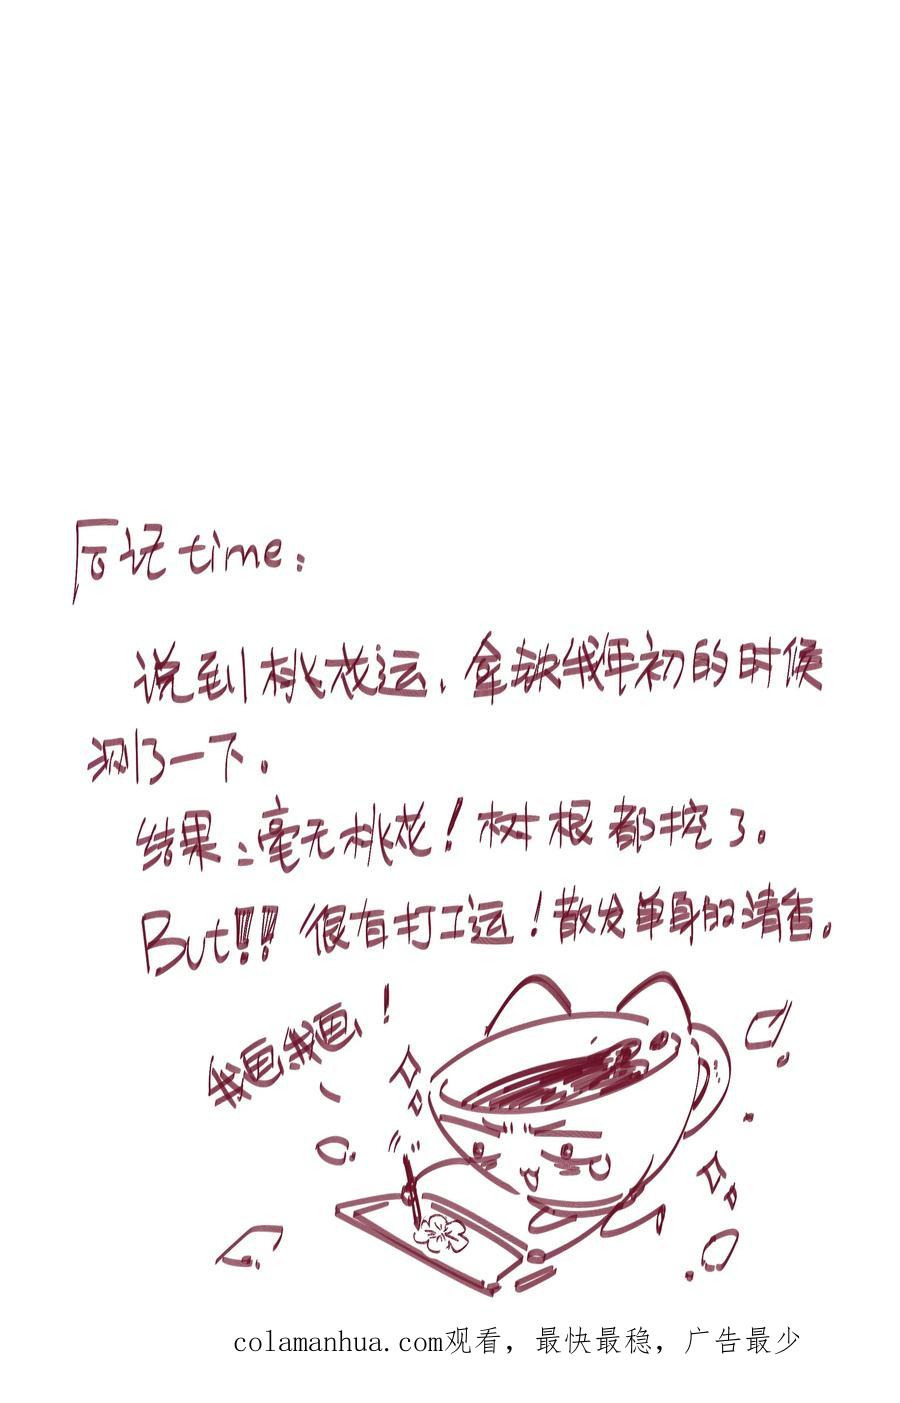 后记time：
说到桃花运、拿铁我年初的时候
测了一下。
结果：毫无桃花！树根都挖了。
But!!! 很有打工运！散发单身的清香。
我画我画！
colamanhua.com观看，最快最稳，广告最少